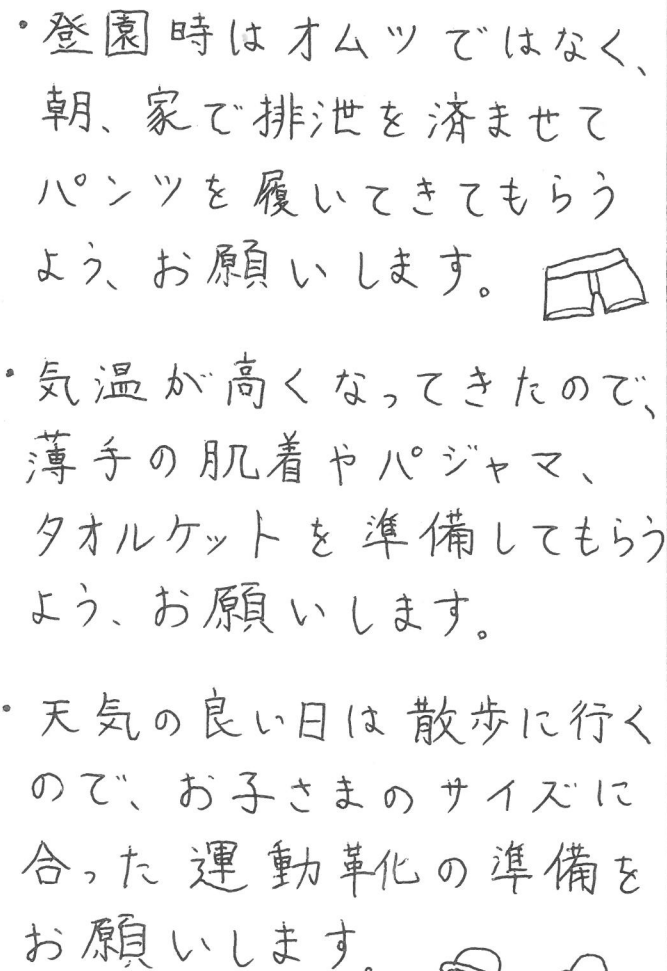 ・登園時はオムツではなく、
朝、家で排泄を済ませて
パンツを履いてきてもらう
よう、お願いします。
・気温が高くなってきたので、
薄手の肌着やパジャマ、
タオルケットを準備してもらう
よう、お願いします。
・天気の良い日は散歩に行く
ので、お子さまのサイズに
合った運動革化の準備を
お願いします。